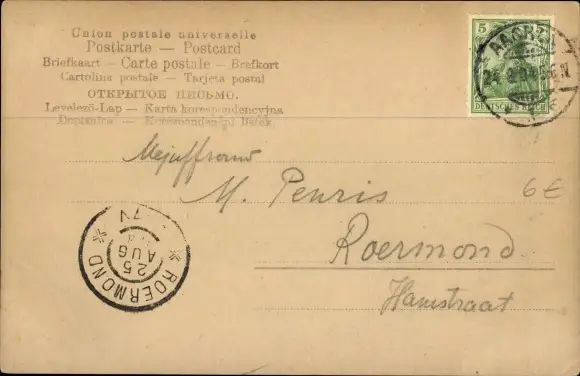 Union postale universelle
Postkarte — Postcard
Briefkaart — Carte postale — Brefkort
Cartolina postale — Tarjeta postal
ОТКРЫТОЕ ПИСЬМО.
Levelező-Lap — Karta korespondencyjna
Dopisnice — Korespondenční lístek
5 5
DEUTSCHES REICH
Mejuffrouw
M. Penris
6€
Roermond
Hamstraat
ROERMOND
25
AUG
7V